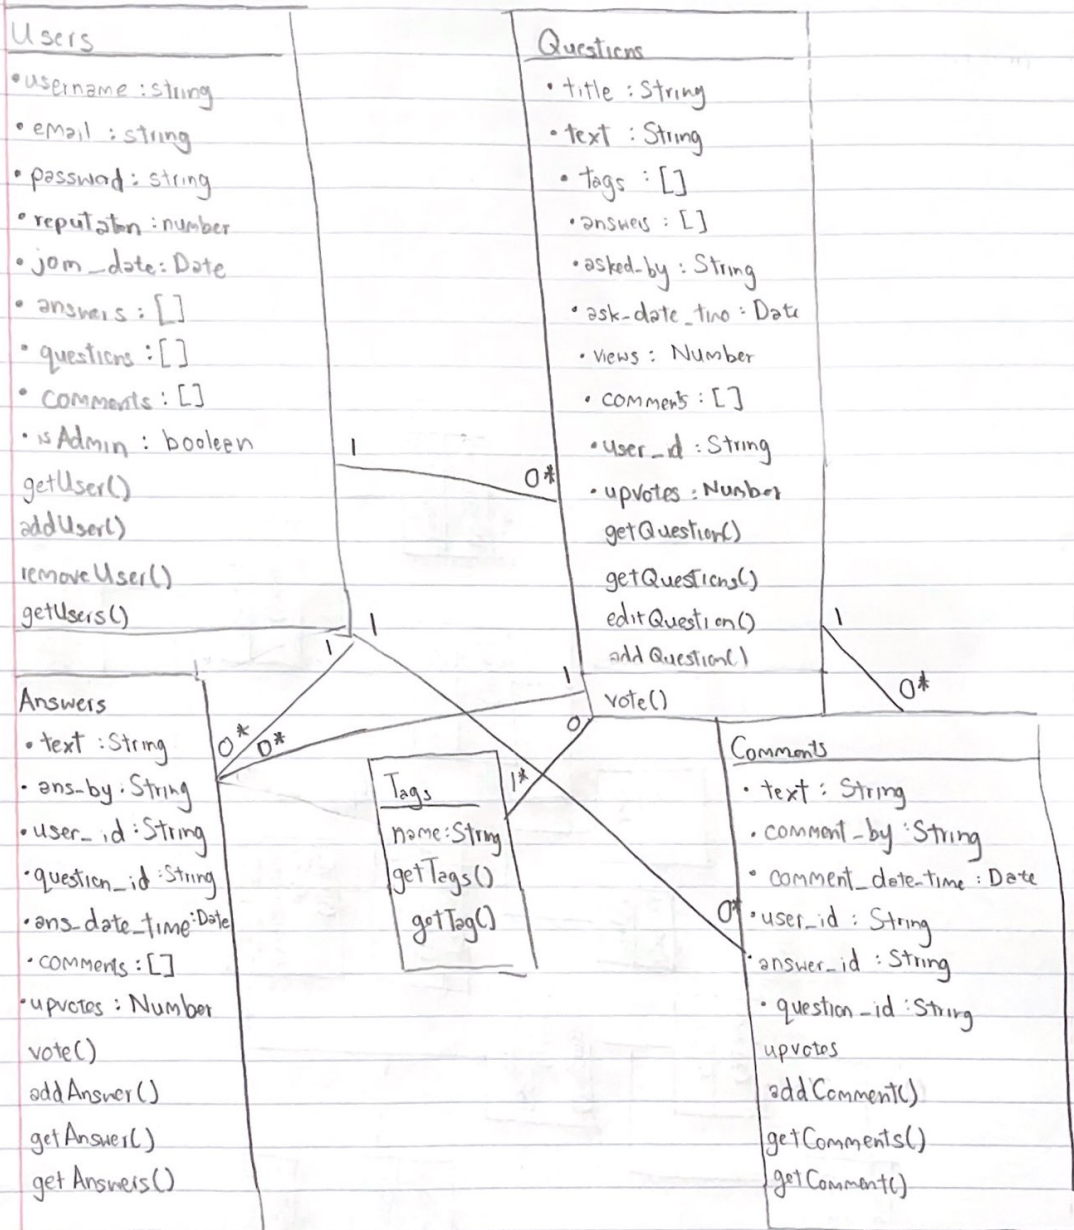 Users
• username : string
• email : string
• password : string
• reputation : number
• join_date : Date
• answers : []
• questions : []
• comments : []
• isAdmin : booleen
getUser()
addUser()
removeUser()
getUsers()
Questions
• title : String
• text : String
• tags : []
• answers : []
• asked_by : String
• ask_date_time : Date
• views : Number
• comments : []
• user_id : String
• upvotes : Number
getQuestion()
getQuestions()
editQuestion()
addQuestion()
vote()
1
0*
1
1
0*
0*
1
0
1*
1
0*
0*
Answers
• text : String
• ans_by : String
• user_id : String
• question_id : String
• ans_date_time : Date
• comments : []
• upvotes : Number
vote()
addAnswer()
getAnswer()
getAnswers()
Tags
name : String
getTags()
getTag()
Comments
• text : String
• comment_by : String
• comment_date_time : Date
• user_id : String
• answer_id : String
• question_id : String
upvotes
addComment()
getComments()
getComment()